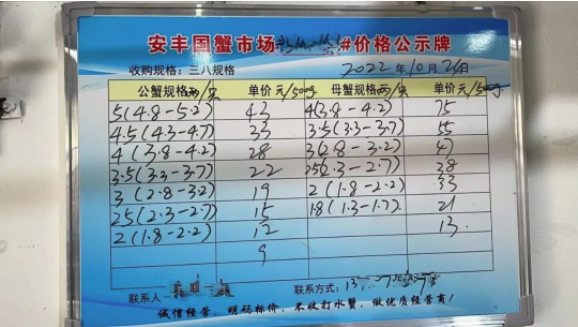 安丰国蟹市场 #价格公示牌
收购规格：三八规格 2022年10月26日
公蟹规格两/只 单价 元/500g 母蟹规格两/只 单价 元/500g
5(4.8-5.2) 43 4(3.8-4.2) 75
4.5(4.3-4.7) 33 3.5(3.3-3.7) 55
4(3.8-4.2) 28 3(2.8-3.2) 47
3.5(3.3-3.7) 22 25(2.3-2.7) 38
3(2.8-3.2) 19 2(1.8-2.2) 33
25(2.3-2.7) 15 1.8(1.3-1.7) 21
2(1.8-2.2) 12 13.
9
联系人 联系方式：
诚信经营、明码标价、不收打水蟹、做优质经营商！